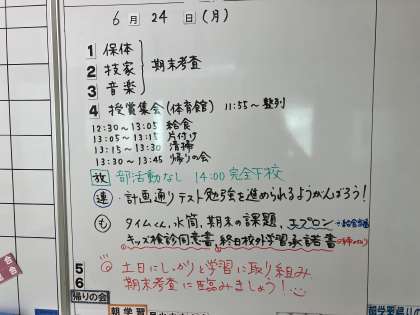 6月24日(月)
1 保体
2 技家
3 音楽
期末考査
4 授賞集会(体育館) 11:55〜整列
12:30〜13:05 給食
13:05〜13:15 片付け
13:15〜13:30 清掃
13:30〜13:45 帰りの会
放 部活動なし 14:00完全下校
連 ・計画通りテスト勉強を進められるようがんばろう!
も タイムくん、水筒、期末の課題、エプロン
キッズ検診同意書、終日校外学習承諾書
5
6
土日にしっかりと学習に取り組み
期末考査に臨みましょう!
帰りの会
朝学習